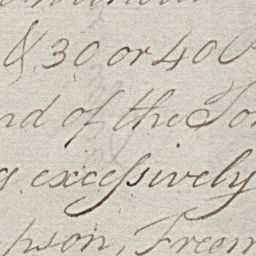 & 30 or 40
nd of the
g excessively
pson, Freem